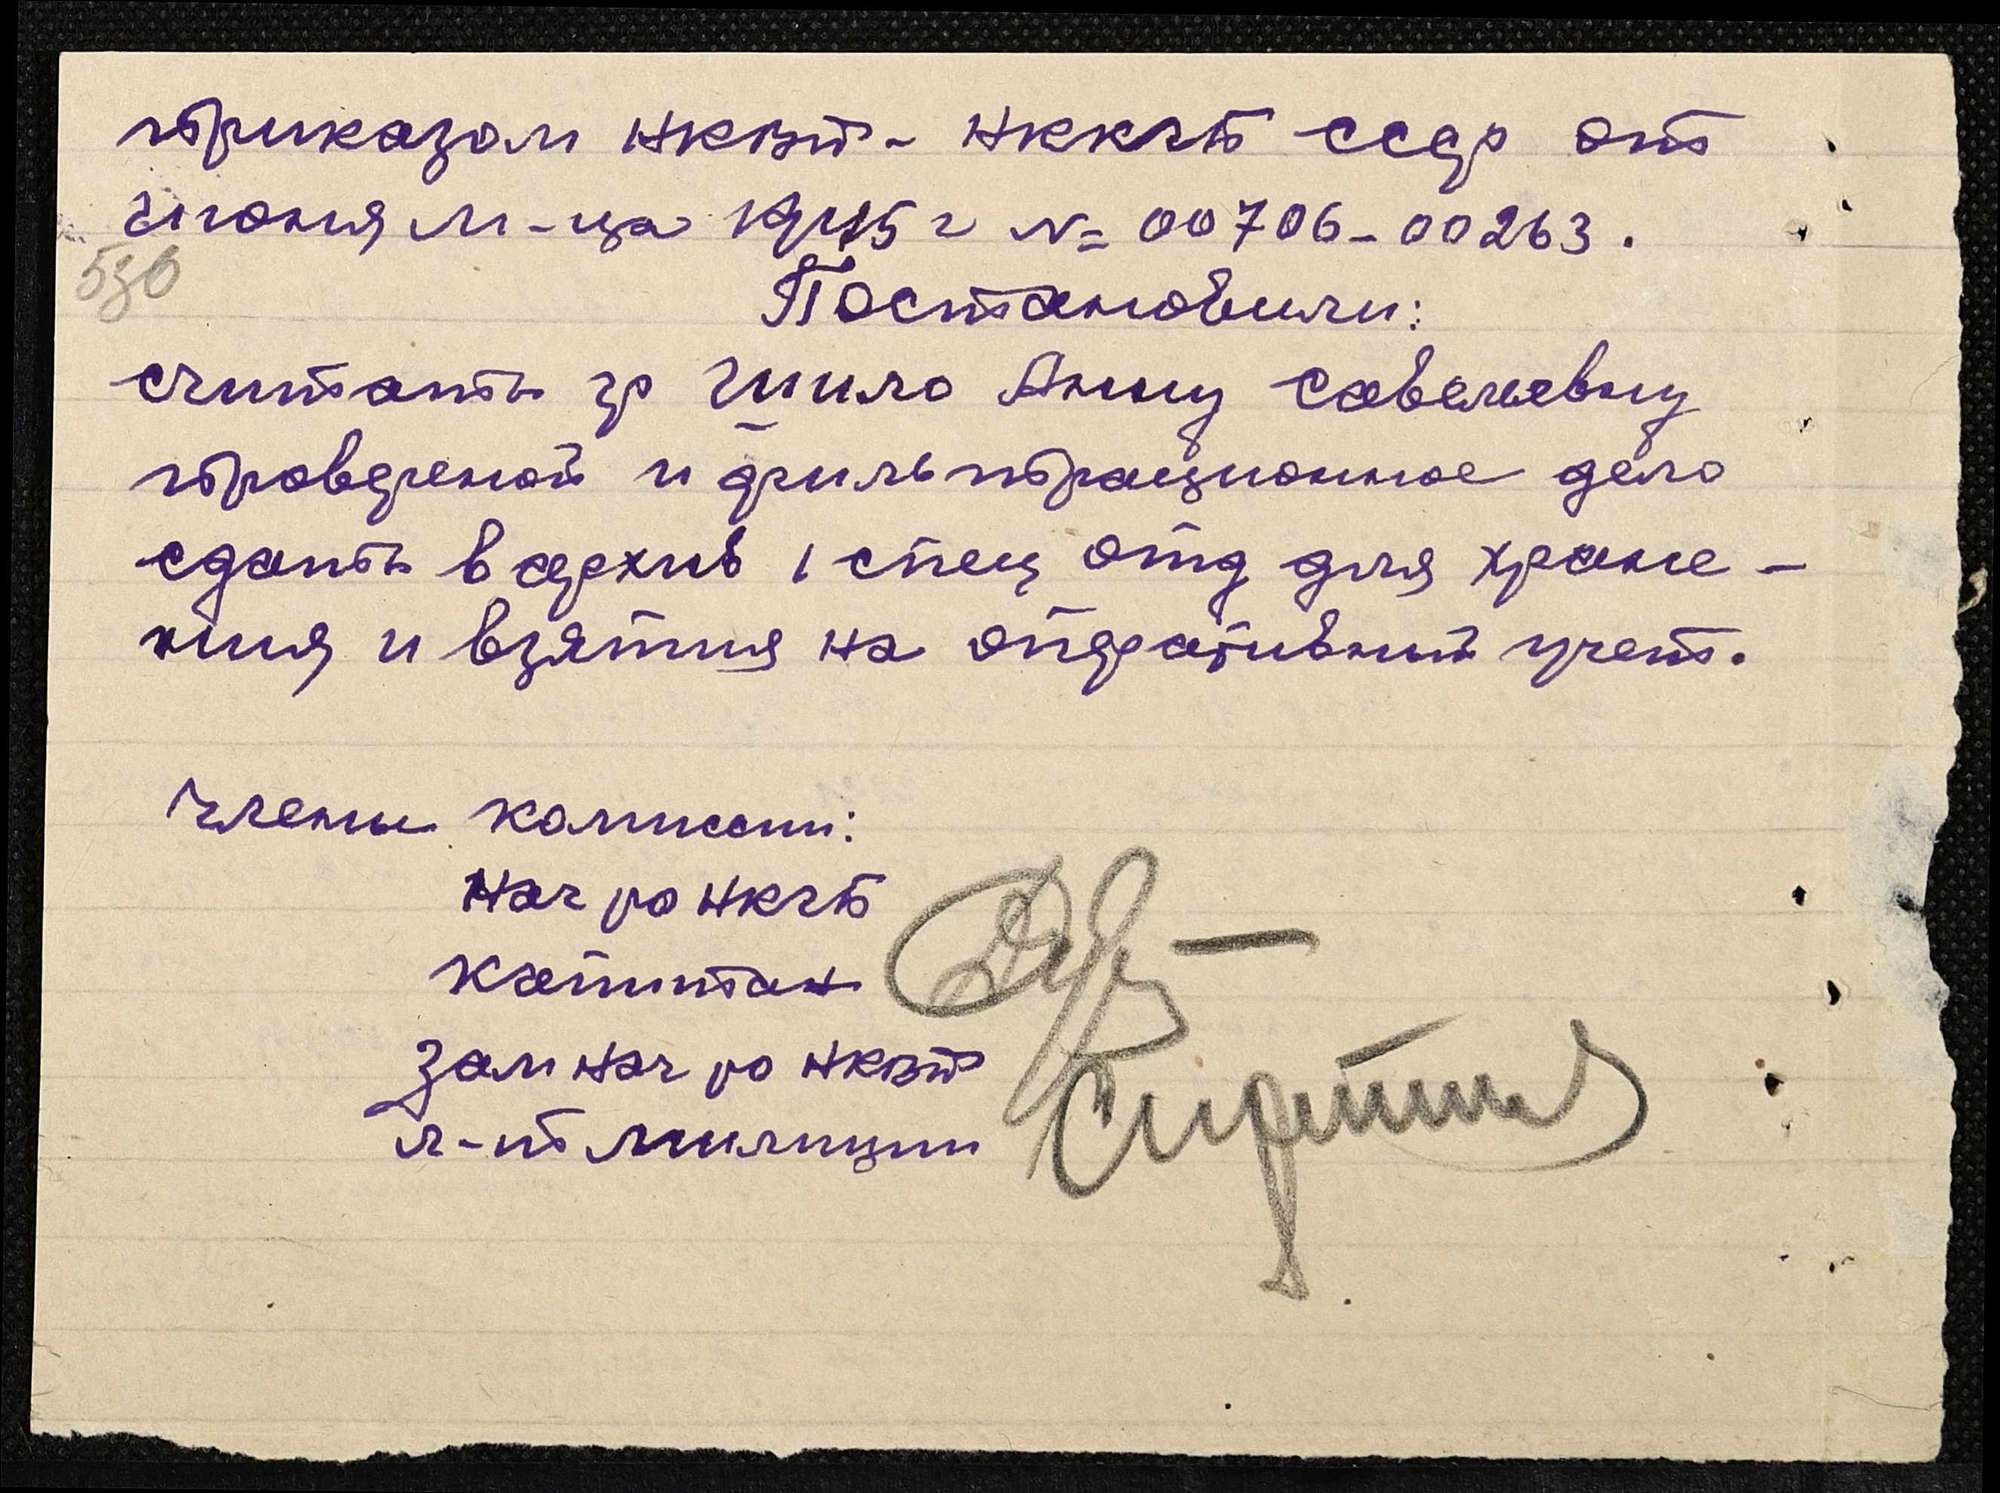 приказом НКВД - НККГБ СССР от
июня м-ца 1945 г № 00706-00263.
Постановили:
считать гр Шило Анну Савельевну
проверенной и фильтрационное дело
сдать в архив 1 спец отд для хране-
ния и взятия на оперативный учет.
Члены комиссии:
Нач РО НКГБ
Капитан
Зам нач РО НКВД
л-нт милиции